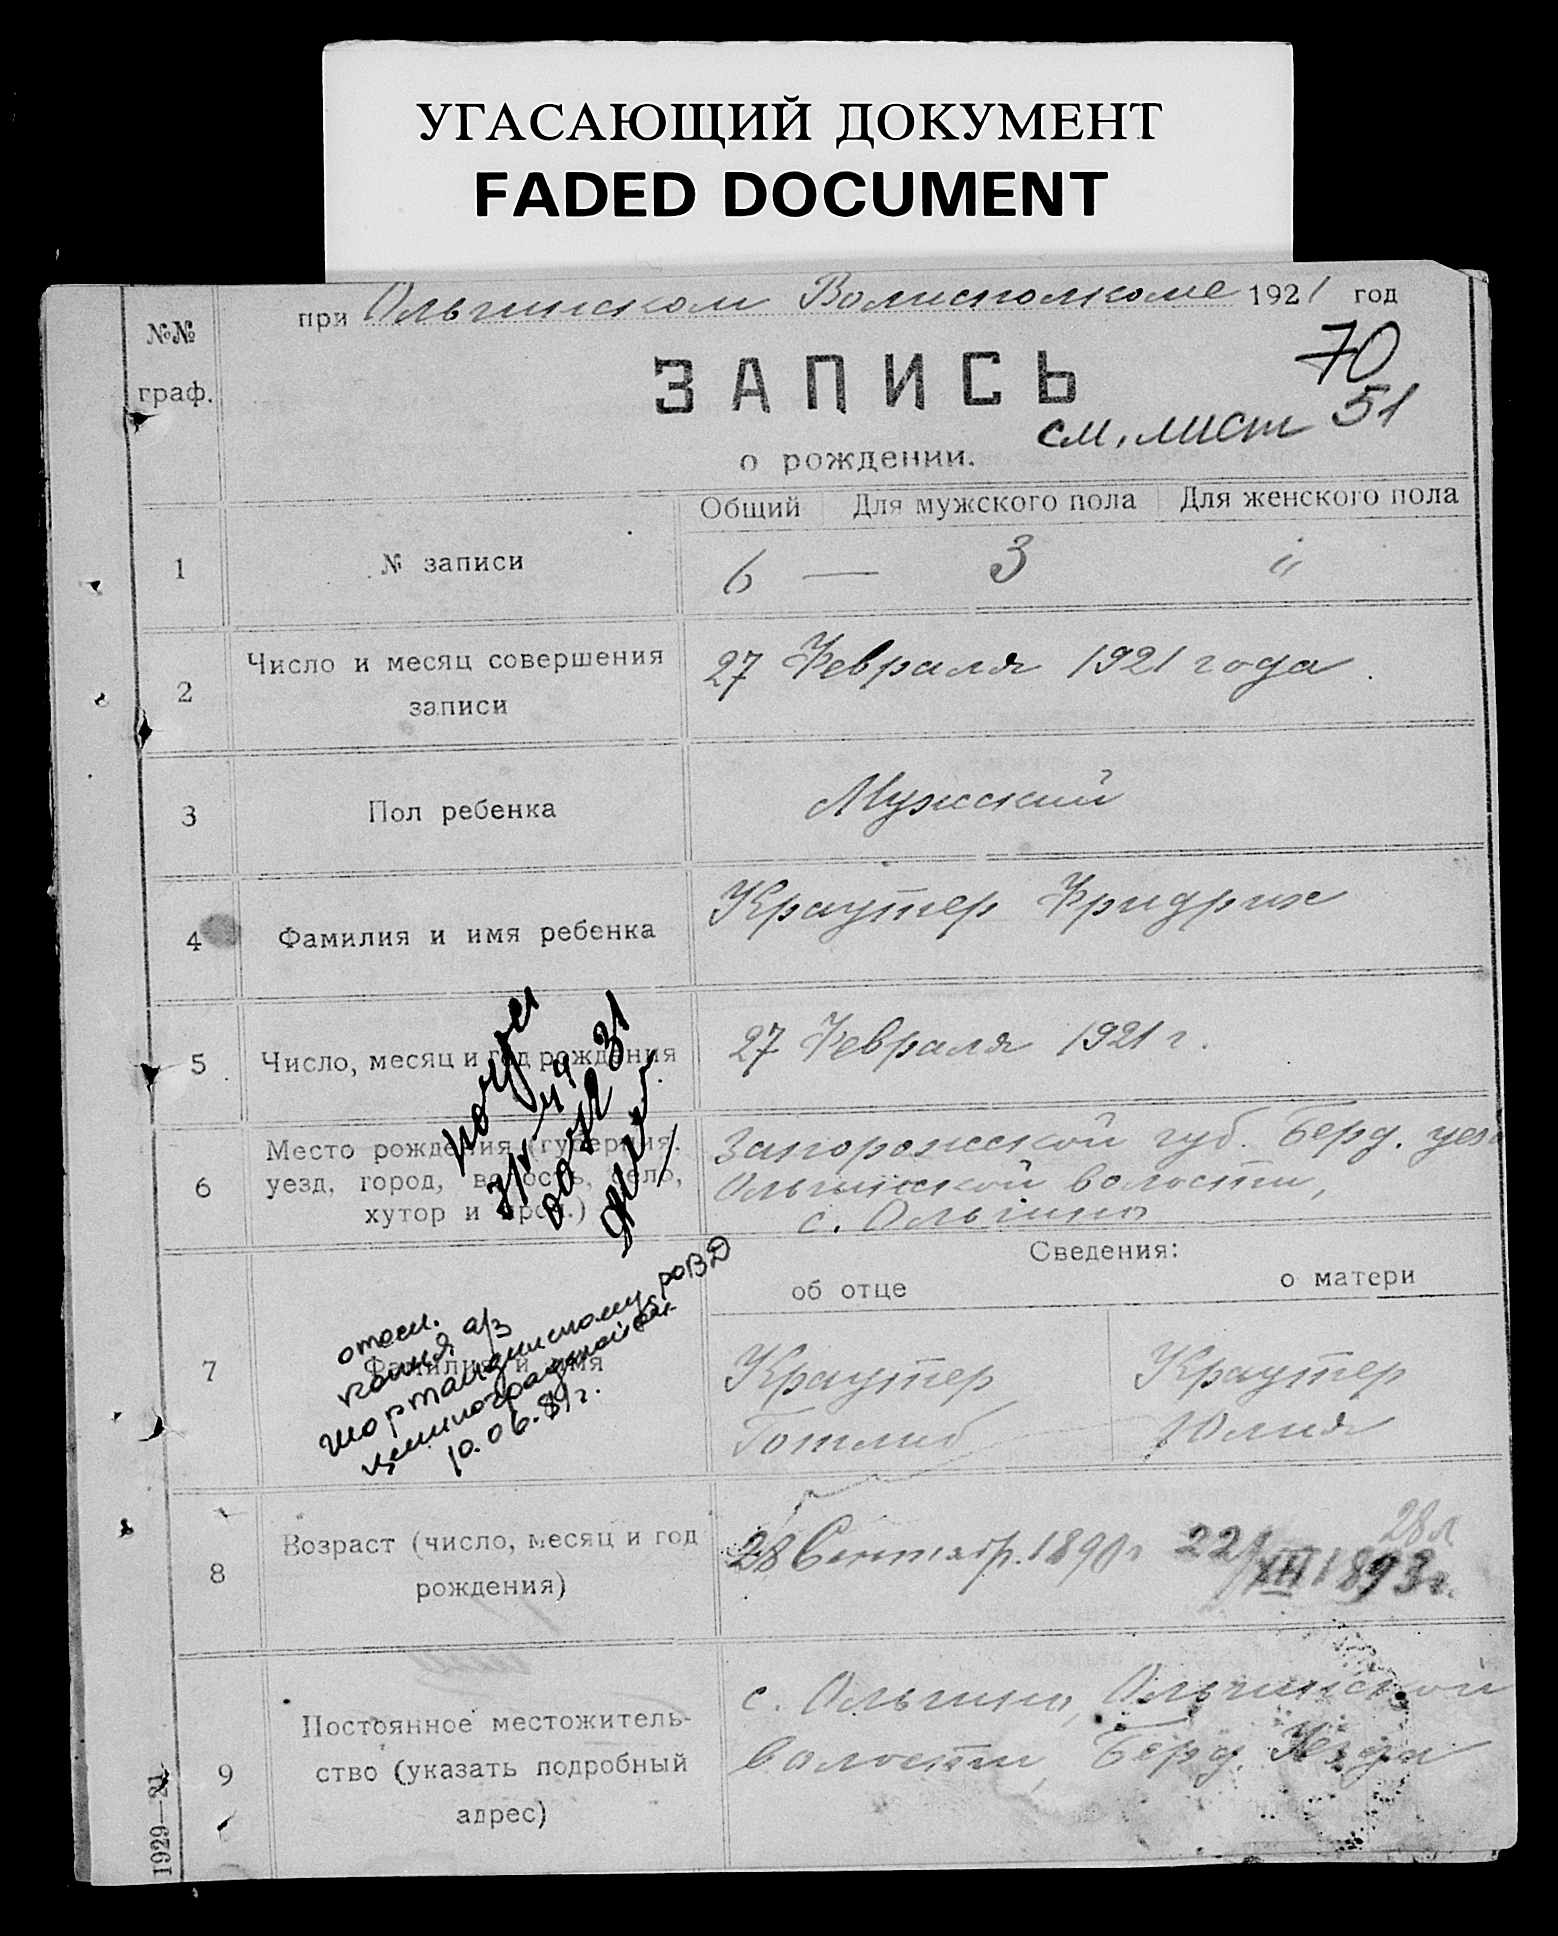 УГАСАЮЩИЙ ДОКУМЕНТ
FADED DOCUMENT
при Ольгинском Волисполкоме 1921 год
№№
граф.
ЗАПИСЬ
70
см. лист 51
о рождении.
Общий Для мужского пола Для женского пола
1 № записи 6 — 3 "
2 Число и месяц совершения
записи
27 Февраля 1921 года
3 Пол ребенка Мужский
4 Фамилия и имя ребенка Краутер Фридрих
5 Число, месяц и год рождения 27 Февраля 1921 г.
6 Место рождения (губерния,
уезд, город, волость, село,
хутор и проч.)
Запорожской губ. Берд. уезд
Ольгинской волости,
с. Ольгино
Сведения:
об отце о матери
7 Фамилия и имя
Краутер
Готлиб
Краутер
Юлия
31
отосл.
копия а/з
шортандинскому РОВД
целиноградской обл.
10.06.81г.
8 Возраст (число, месяц и год
рождения)
28 Сентябр. 1890 г 22/XII 1893 г.
28 л
9 Постоянное местожитель-
ство (указать подробный
адрес)
с. Ольгино, Ольгинской
волости, Берд. Уезда
1929—21